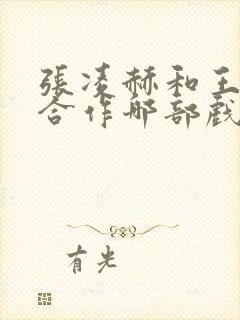 張凌赫和王
合作那部戲
有光